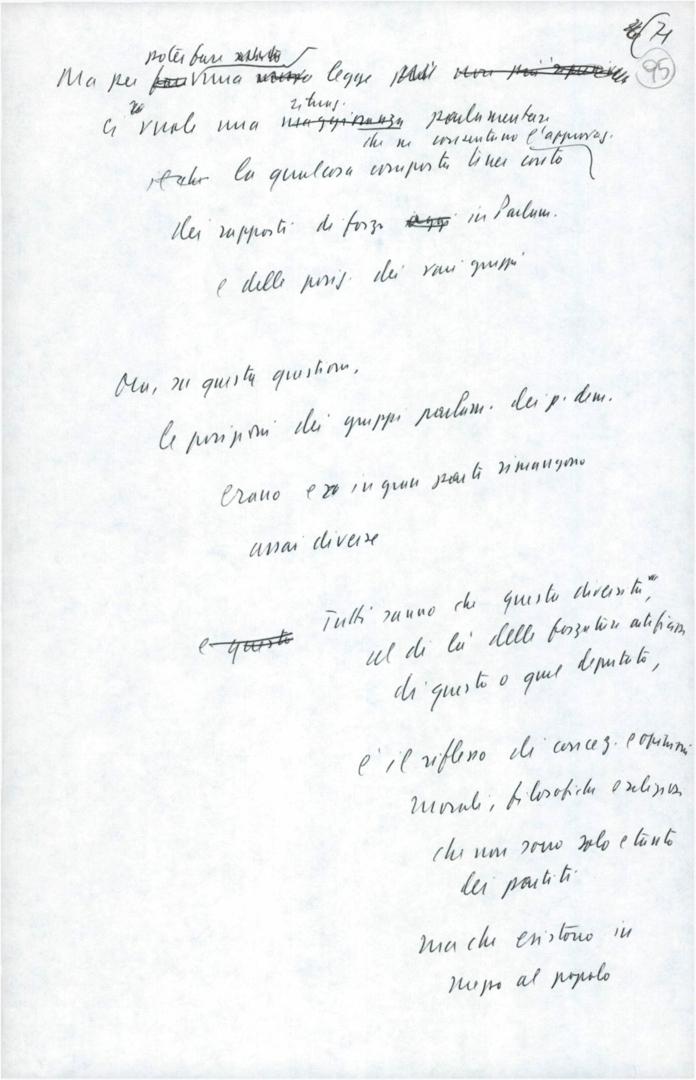 71
95
poter fare subito
Ma per fare una nuova legge
ci vuole una maggioranza parlamentare
situaz.
che ne consentano l'approvaz.
la qualcosa comporta tener conto
dei rapporti di forza oggi in Parlam.
e delle posiz. dei vari gruppi
Ora, su questa questione,
le posizioni dei gruppi parlam. dei p. dem.
erano e in gran parte rimangono
assai diverse
e questo
Tutti sanno che questa diversità,
al di là delle forzature artificiose
di questo o quel deputato,
è il riflesso di concez. e opinioni
morali, filosofiche e religiose
che non sono solo e tanto
dei partiti
ma che esistono in
mezzo al popolo